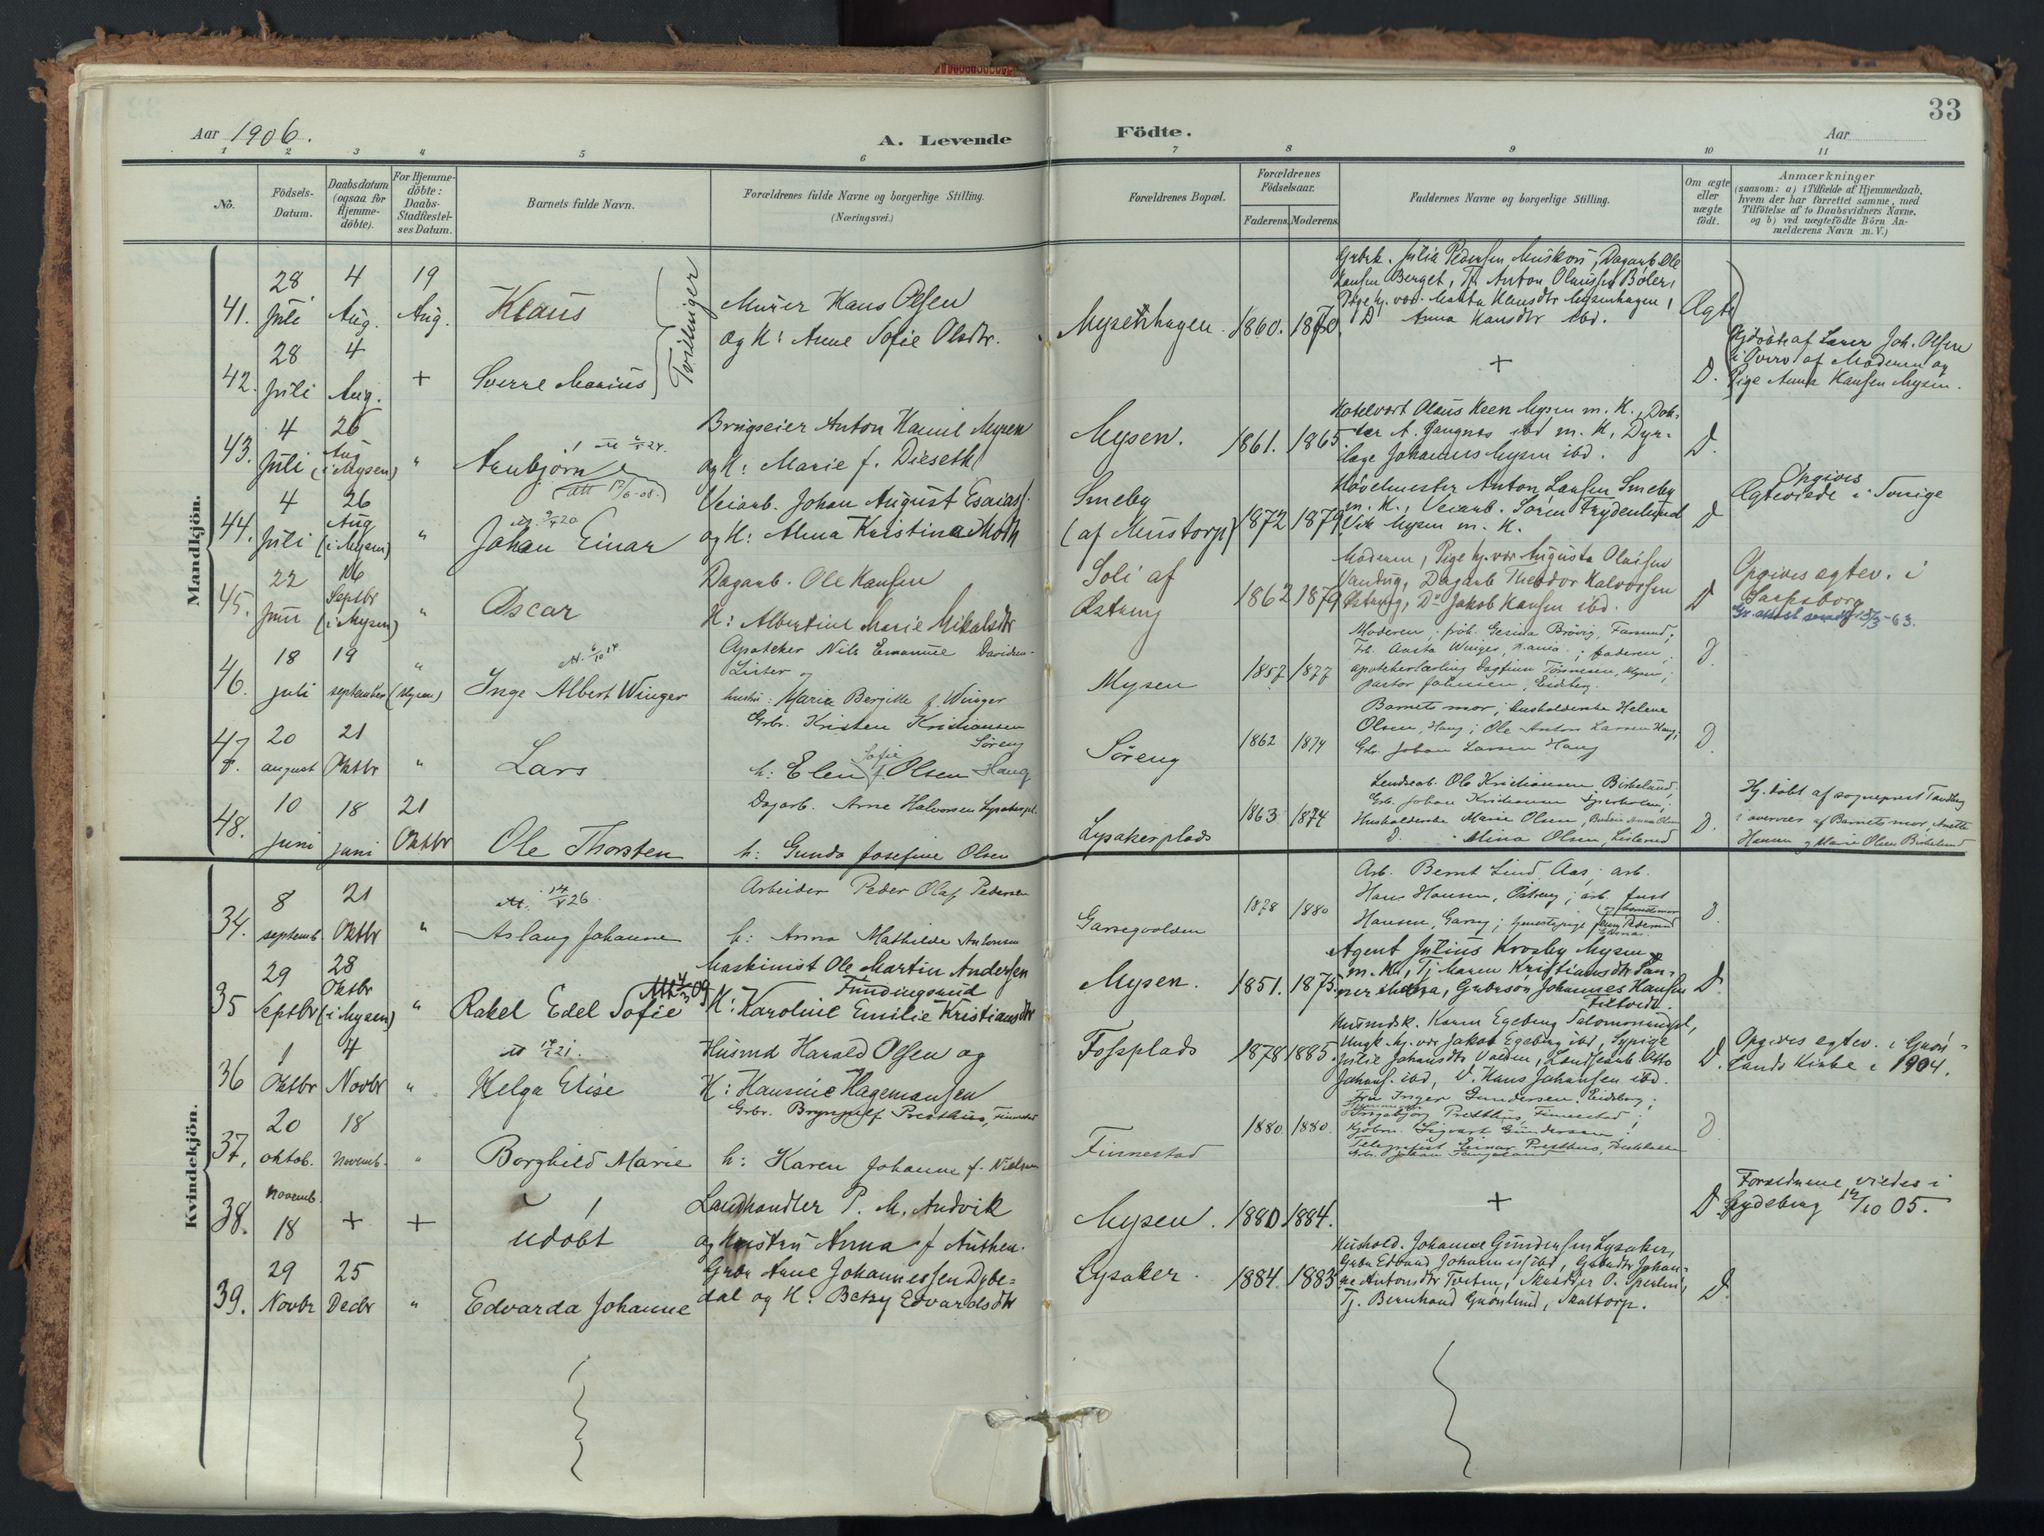 33
Aar 1906.
A. Levende
Födte.
Aar
1 2 3 4 5 6 7 8 9 10 11
No.
Födsels-
Datum.
Daabsdatum
(ogsaa for
Hjemme-
döbte).
For Hjemme-
döbte:
Daabs-
Stadfæstel-
ses Datum.
Barnets fulde Navn.
Forældrenes fulde Navne og borgerlige Stilling.
(Næringsvei.)
Forældrenes Bopæl.
Forældrenes
Födselsaar.
Faderens.
Moderens.
Faddernes Navne og borgerlige Stilling.
Om ægte
eller
uægte
født.
Anmærkninger
(saasom: a) i Tilfælde af Hjemmedaab,
hvem der har forrettet samme, med
Tilföielse af to Daabsvidners Navne,
og b) ved uægtefödte Börn An-
melderens Navn m. V.)
Mandkjön.
41. 28 Juli 4 Aug. 19 Aug.
Klaus
Tvillinger
Murer Hans Olsen
og H: Anne Sofie Olsdtr.
Mysenhagen. 1860. 1870.
Anna Hansdtr ibd.
Ægte
42. 28 Juli 4 Aug. +
Sverre Marius
+
D.
Hjdøbt af Lærer Joh. Olsen
i Overv af Moderen og
Pige Anna Hansen Mysen.
43. 4 Juli 26 Aug (i Mysen) "
Arnbjörn
Brugseier Anton Hamil Mysen
og H: Marie f. Dieseth
Mysen. 1861. 1865.
Hotelvært Olaus Keen Mysen m. H., Dok-
tær A. Gangnæs ibd m. H., Dyr-
læge Johannes Mysen ibd.
D.
44. 4 Juli 26 Aug (i Mysen) "
Johan Einar
Veiarb. Johan August Esaiass.
og H: Alma Kristina Moth
Smeby
(af Mustorp) 1872 1879
Høvelmester Anton Larsen Smeby
m. H., Veiarb. Sören Frydenlund
Mysen m. H.
D
Opgives
Ægteviede i Sverige
45. 22 Juni 16 Septbr (i Mysen) "
Oscar
Dagarb. Ole Hansen
H: Albertine Marie Mikalsdtr
Soli af
Østeng 1862 1879
Moderen, Pige hj. vær Augusta Olausen
Dagarb Theodor Halvorsen
Østeng, Do Jakob Hansen ibd.
D
Opgives egtev. i
Sarpsborg
46. 18 juli 19 september (Mysen) "
Inge Albert Winger
Apoteker Nils Emanuel Davidsen
Lister og
hustru Marie Bergitte f. Winger
Mysen 1857 1877
Moderen; frøk. Gesina Brövig, Farsund;
Frk. Aasta Winger, Hamar; faderen;
apothekerlærling Dagfinn Tønnesen, Mysen;
pastor Johnsen, Eidsberg.
D.
47. 20 august 21 Oktbr "
Lars
Grbr. Kristen Kristiansen
Søreng
h: Elen Sofie f. Olsen Haug
Søreng 1862 1874
Barnets mor; husholderske Helene
Olsen, Haug; Ole Anton Larsen Haug;
Grbr. Johan Larsen Haug
D.
48. 10 juni 18 juni 21 Oktbr
Ole Thorsten
Dagarb. Arne Halvorsen Lysakerpl.
h: Gunda Josefine Olsen
Lysakerplads 1863 1874
Landsarb. Ole Kristiansen Birkelund,
Grb. Johan Kristiansen
Husholderske Marie Olsen,
D. Mina Olsen,
D.
Hj. døbt af sogneprest Tandberg
i overvær af Barnets mor, Anette
Hansen og Marie Olsen Birkelund
Kvindekjön.
34. 8 septemb. 21 Oktbr "
Aslaug Johanne
Arbeider Peder Olaf Pedersen
h: Anna Mathilde Antonsen
Garsegvolden 1878 1880
Arb. Bernt Lind, Aas; arb.
Hans Hansen, Østreng; arb. Just
Hansen, Garseg;
D.
35 29 Septbr 28 Oktbr (i Mysen) "
Rakel Edel Sofie
Maskinist Ole Martin Andersen
Fundingsrud
H: Karoline Emilie Kristiansdtr
Mysen. 1851. 1875.
Agent Julius Krosby Mysen
m. H., Tj Maren Kristiansdtr San-
ner Gaarbrsøn Johannes Hansen
Filtvedt
D.
36 1 Oktbr 4 Novbr "
Helga Elise
Husmd Harald Olsen og
H: Hansine Hagemansen
Fossplads 1878 1885.
Husmdsk. Karen Egeberg Salomonengspl,
Ungk. hj. vær Jakob Egeberg ibd, Sypige
Julie Johansdtr Valden, Landsarb Otto
Johans. ibd, D. Hans Johansen ibd.
D.
Opgives egtev. i Grøn-
lands Kirke i 1904.
37. 20 oktob. 18 novemb. "
Borghild Marie
Grbr. Brynjulf Presthus, Finnestad
h: Karen Johanne f. Nielsen
Finnestad 1880. 1880.
Fru Inger Gundersen, Eidsberg;
Ingebjørg Presthus, Finnestad;
Kjøbm. Sigvart Gundersen;
Telegrafist Einar Presthus,
D
38. novemb. 18 + +
udøbt
Landhandler P. M. Andvik
og Hustru Anna f Authen.
Mysen. 1880. 1884.
+
D
Forældrene viedes i
Spydeberg 14/10 05.
39. 29 Novbr 25 Decbr "
Edvarda Johanne
Grbr Arne Johannessen Dybe-
dal og H: Betsy Edvardsdtr
Lysaker. 1884. 1883
Hushold. Johanne Gundersen Lysaker,
Grbr Edvard Johannes ibd, Gbrdtr Johan-
ne Antonsdtr Tveten,
Tj. Bernhard Grønlund, Skaltorp.
D.